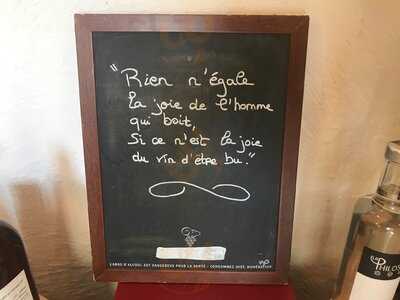 "Rien n'égale
la joie de l'homme
qui boit,
Si ce n'est la joie
du vin d'être bu."
L'ABUS D'ALCOOL EST DANGEREUX POUR LA SANTÉ - CONSOMMEZ AVEC MODÉRATION
PHILOS